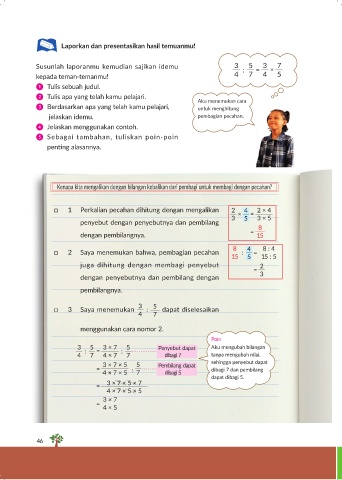 Laporkan dan presentasikan hasil temuanmu!
Susunlah laporanmu kemudian sajikan idemu
kepada teman-temanmu!
1 Tulis sebuah judul.
2 Tulis apa yang telah kamu pelajari.
3 Berdasarkan apa yang telah kamu pelajari,
jelaskan idemu.
4 Jelaskan menggunakan contoh.
5 Sebagai tambahan, tuliskan poin-poin
penting alasannya.
3/4 : 5/7 = 3/4 × 7/5
Aku menemukan cara
untuk menghitung
pembagian pecahan.
Kenapa kita mengalikan dengan bilangan kebalikan dari pembagi untuk membagi dengan pecahan?
□ 1 Perkalian pecahan dihitung dengan mengalikan
penyebut dengan penyebutnya dan pembilang
dengan pembilangnya.
2/3 × 4/5 = 2 × 4/3 × 5
= 8/15
□ 2 Saya menemukan bahwa, pembagian pecahan
juga dihitung dengan membagi penyebut
dengan penyebutnya dan pembilang dengan
pembilangnya.
8/15 : 4/5 = 8 : 4/15 : 5
= 2/3
□ 3 Saya menemukan 3/4 : 5/7 dapat diselesaikan
menggunakan cara nomor 2.
3/4 : 5/7 = 3 × 7/4 × 7 : 5/7
Penyebut dapat
dibagi 7
= 3 × 7 × 5/4 × 7 × 5 : 5/7
Pembilang dapat
dibagi 5
= 3 × 7 × 5 × 7/4 × 7 × 5 × 5
= 3 × 7/4 × 5
Poin
Aku mengubah bilangan
tanpa mengubah nilai,
sehingga penyebut dapat
dibagi 7 dan pembilang
dapat dibagi 5.
46